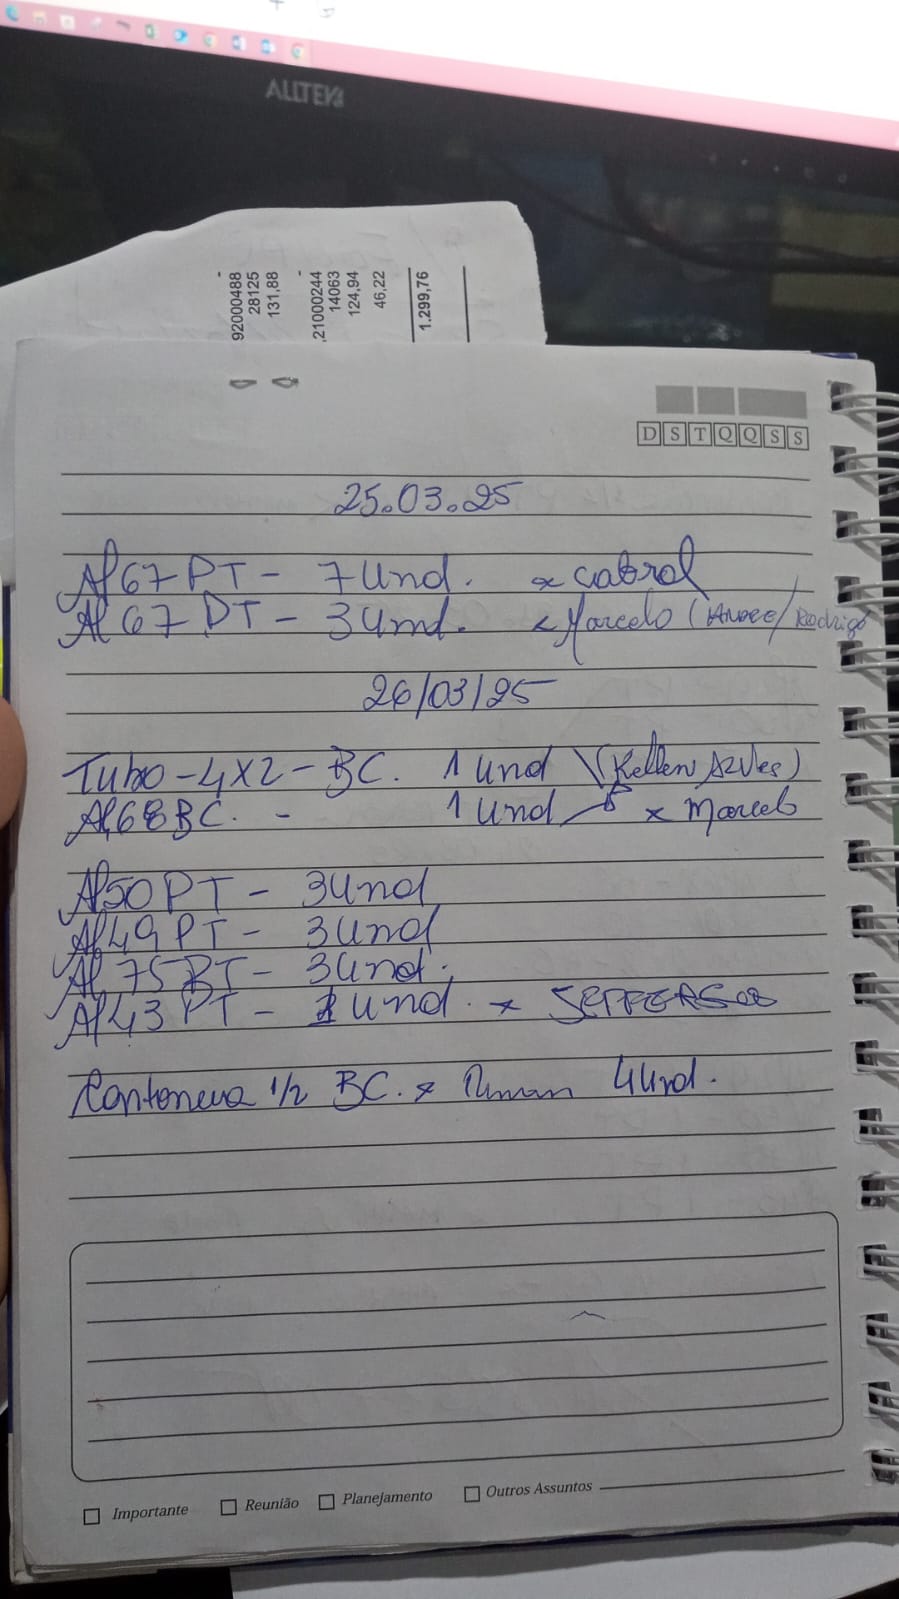 ALLTEK
92000488
28125
131,88
,21000244
14063
124,94
46,22
1.299,76
D S T Q Q S S
25.03.25
Al 67 PT - 7 Und. x Cabral
Al 67 PT - 3 Und. x Marcelo (Andre/Rodrigo
26/03/25
Tubo - 4x2 - BC. 1 und (Kellen Alves)
Al 68 BC. - 1 und x Marcelo
Al 50 PT - 3 Und
Al 49 PT - 3 Und
Al 75 PT - 3 Und.
Al 43 PT - 1 Und. x JEFFERSON
Cantoneira 1/2 BC. x 4 Und.
Importante Reunião Planejamento Outros Assuntos